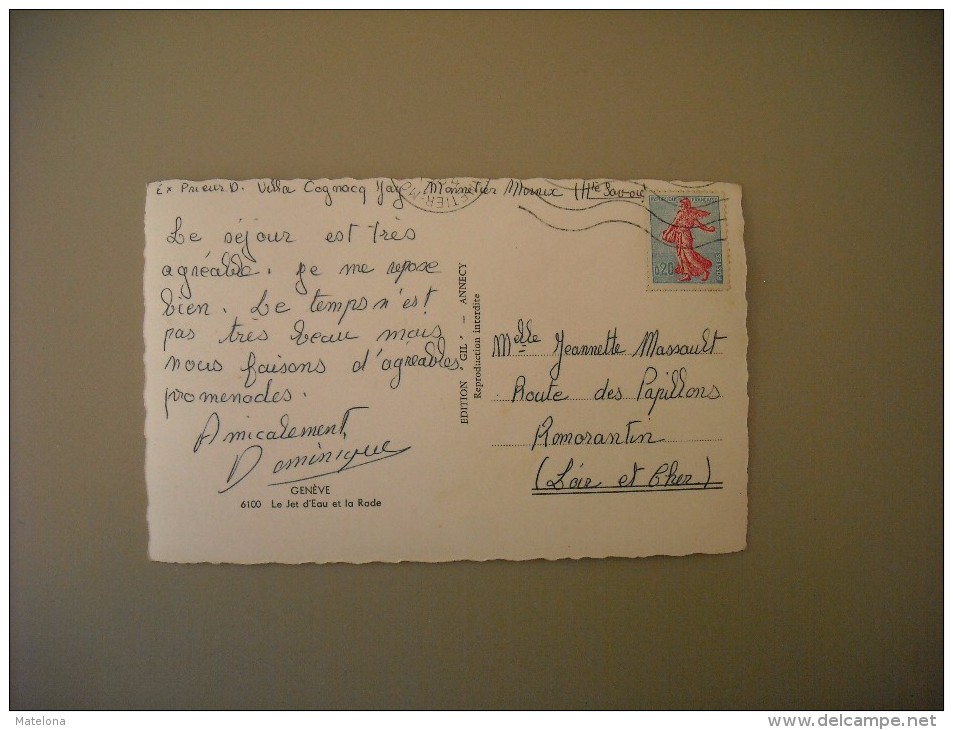 Ex Prieur D. Villa Cognacq Jay Monnetier Mornex (Hte Savoie)
Le séjour est très
agréable. je me repose
bien. Le temps n'est
pas très beau mais
nous faisons d'agréables
promenades.
Amicalement,
Dominique
GENÈVE
6100 Le Jet d'Eau et la Rade
EDITION "GIL" - ANNECY
Reproduction interdite
REPUBLIQUE FRANÇAISE
0.20
POSTES
Melle Jeannette Massault
Route des Papillons
Romorantin
(Loir et Cher)
Matelona
www.delcampe.net